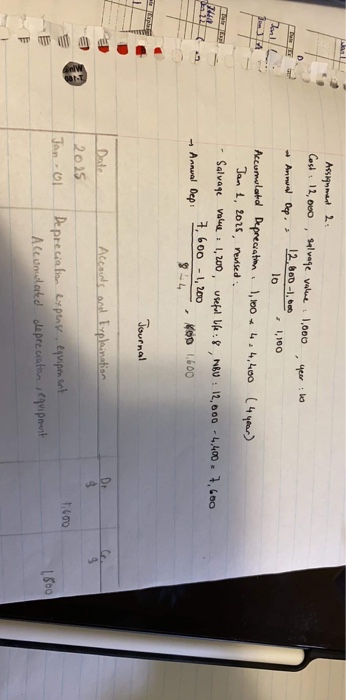 Assignment 2:
Cost: 12,000, salvage value: 1,000, year: 10
→ Annual Dep. = 12,000 - 1,000 / 10 = 1,100
Accumulated Depreciation: 1,100 x 4 = 4,400 (4 year)
Jan 1, 2025 revised:
- Salvage value = 1,200, useful life: 8, NBV: 12,000 - 4,400 = 7,600
→ Annual Dep: 7,600 - 1,200 / 8-4 = 1,600
Journal
Date Accounts and Explaination Dr $ Cr. $
2025
Jan - 01 Depreciation expense, equipment 1,600
Accumulated depreciation, equipment 1,600